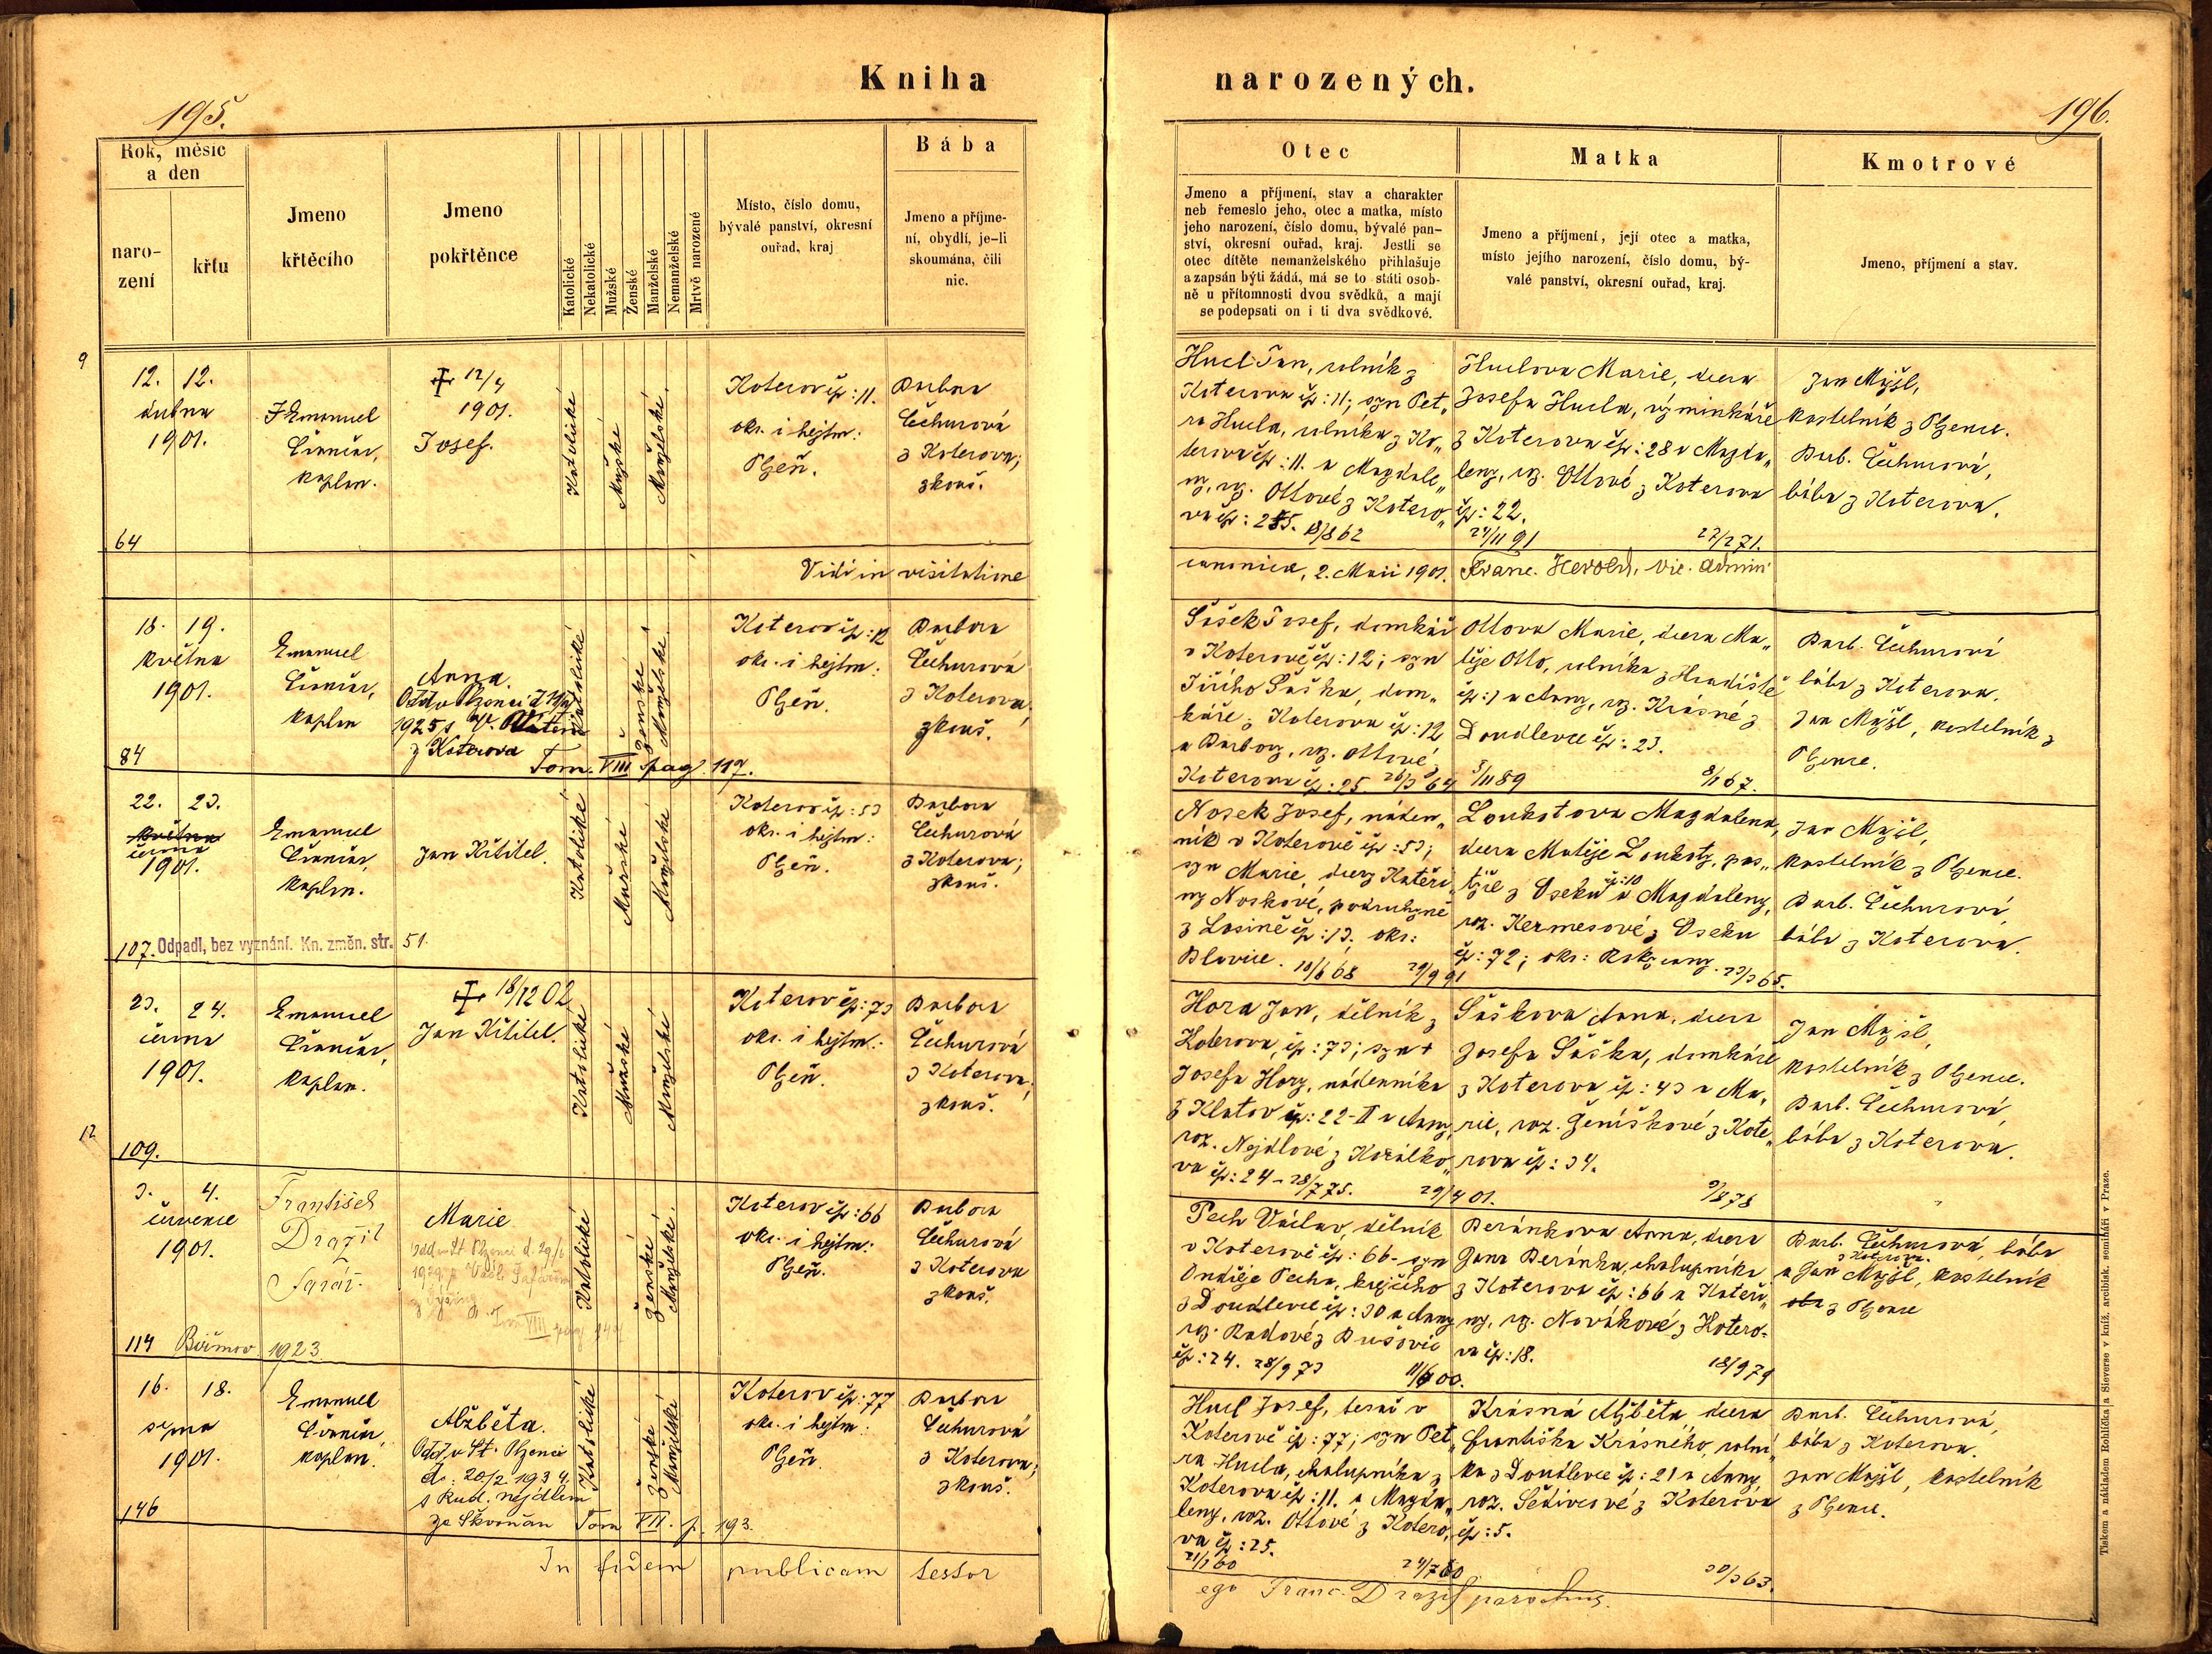 Kniha narozených.
195.
196.
Rok, měsíc
a den
naro-
zení
křtu
Jmeno
křtěcího
Jmeno
pokřtěnce
Katolické
Nekatolické
Mužské
Ženské
Manželské
Nemanželské
Mrtvě narozené
Místo, číslo domu,
bývalé panství, okresní
ouřad, kraj
Bába
Jmeno a příjme-
ní, obydlí, je-li
skoumána, čili
nic.
Otec
Jmeno a příjmení, stav a charakter
neb řemeslo jeho, otec a matka, místo
jeho narození, číslo domu, bývalé pan-
ství, okresní ouřad, kraj. Jestli se
otec dítěte nemanželského přihlašuje
a zapsán býti žádá, má se to státi osob-
ně u přítomnosti dvou svědků, a mají
se podepsati on i ti dva svědkové.
Matka
Jmeno a příjmení, její otec a matka,
místo jejího narození, číslo domu, bý-
valé panství, okresní ouřad, kraj.
Kmotrové
Jmeno, příjmení a stav.
9
12. 12.
dubna
1901.
64
Emanuel
kaplan.
12/4
1901.
Josef.
Katolické
Mužské
Manželské
Koterov čp: 11.
okr. i hejtm:
Plzeň.
Barbora
Čechurová
z Koterova;
zkouš.
Hucl Jan, rolník z
Koterova čp: 11; syn Pet„
ra Hucla, rolníka z Ko„
terova čp: 11. a Magdale„
ny, rz. Ottové z Kotero„
va čp: 25. 18/8 62
Huclova Marie, dcera
Josefa Hucla, výminkáře
z Koterova čp: 28 a Magda„
leny, rz. Ottové z Koterova
čp: 22.
24/11 91 27/2 71.
Jan Mýzl,
kostelník z Plzence.
Barb. Čechurová,
bába z Koterova.
Vidi in visitatione
canonica, 2. Maii 1901. Franc. Herold, vic. admin
18. 19.
května
1901.
84
Emanuel
kaplan
Anna.
1925 s
z Koterova
Tom. VIII pag. 117.
Katolické
Ženské
Manželské
Koterov čp: 12
okr. i hejtm:
Plzeň.
Barbora
Čechurová
z Koterova,
zkouš.
Šašek Josef, domkář
v Koterově čp: 12; syn
Jiřího Šaška, dom„
káře z Koterova čp: 12
a Barbory, rz. Ottové z
Koterova čp: 25 26/3 64
Ottova Marie, dcera Ma„
těje Otto, rolníka z Hradiště
čp: 1 a Anny, rz. Krásné z
Doudlevce čp: 23.
5/11 89 8/1 67.
Barb. Čechurová
bába z Koterova.
Jan Mýzl, kostelník z
Plzence.
22. 23.
května
června
1901.
107. Odpadl, bez vyznání. Kn. změn. str. 51.
Emanuel
kaplan.
Jan Křtitel.
Katolické
Mužské
Manželské
Koterov čp: 53
okr. i hejtm:
Plzeň.
Barbora
Čechurová
z Koterova;
zkouš.
Nosek Josef, náden„
ník v Koterově čp: 53;
syn Marie, dcery Kateři„
ny Noskové, podruhyně
z Losině čp: 13. okr:
Blovice. 10/6 68 29/9 91
Loukotova Magdalena,
dcera Matěje Loukoty, pas„
týře z Oseku čp: 10 a Magdaleny,
roz. Kermesové z Oseku
čp: 72; okr: Rokycany. 23/3 65.
Jan Mýzl,
kostelník z Plzence.
Barb. Čechurová,
bába z Koterova.
12
23. 24.
června
1901.
109.
Emanuel
kaplan.
18/12 02
Jan Křtitel.
Katolické
Mužské
Manželské
Koterov čp: 73
okr. i hejtm:
Plzeň.
Barbora
Čechurová
z Koterova;
zkouš.
Hora Jan, dělník z
Koterova, čp: 73; syn +
Josefa Hory, nádenníka
z Klatov čp: 22-II a Anny,
roz. Nejdlové z Korálko„
va čp: 24 - 28/7 75. 29/4 01.
Šaškova Anna, dcera
Josefa Šaška, domkáře
z Koterova čp: 43 a Ma„
rie, roz. Ženíškové z Kote„
rova čp: 34.
9/8 78
Jan Mýzl,
kostelník z Plzence.
Barb. Čechurová,
bába z Koterova.
3. 4.
července
1901.
114 Biřmov. 1923
František
Dražil
farář.
Marie
VIII
Katolické
Ženské
Manželské.
Koterov čp: 66
okr. i hejtm:
Plzeň.
Barbora
Čechurová
z Koterova
zkouš.
Pech Václav, dělník
v Koterově čp: 66 - syn
Ondřeje Pecha, krejčího
z Doudlevce čp: 30 a Anny
rz. Radové z Bušovic
čp: 24. 28/9 73 11/6 00.
Beránkova Anna, dcera
Jana Beránka, chalupníka
z Koterova čp: 66 a Kateři„
ny, rz. Novákové z Kotero-
va čp: 18.
18/9 79
Barb. Čechurová, bába
z Koterova
a Jan Mýzl, kostelník
oba z Plzence
16. 18.
srpna
1901.
146
Emanuel
kaplan.
Alžběta.
Odd. v St. Plzenci
d. 20/2 1934
s Rud. Nejdlem
ze Škvorňan Tom VII. p. 193.
Katolické
Ženské
Manželské
Koterov čp: 77
okr. i hejtm:
Plzeň.
Barbora
Čechurová
z Koterova;
zkouš.
Hucl Josef, tesař v
Koterově čp: 77; syn Pet„
ra Hucla, chalupníka z
Koterova čp: 11. a Magda„
leny, roz. Ottové z Kotero„
va čp: 25.
21/1 60
Krásná Alžběta, dcera
Františka Krásného, rolní„
ka z Doudlevce čp: 21 a Anny,
roz. Šedivcové z Koterova
čp: 5.
30/3 63.
Barb. Čechurová,
bába z Koterova.
Jan Mýzl, kostelník
z Plzence.
In fidem publicam testor
ego Franc. Dražil parochus.
Tiskem a nákladem Rohlíčka a Sieverse v kníž. arcibisk. semináři v Praze.